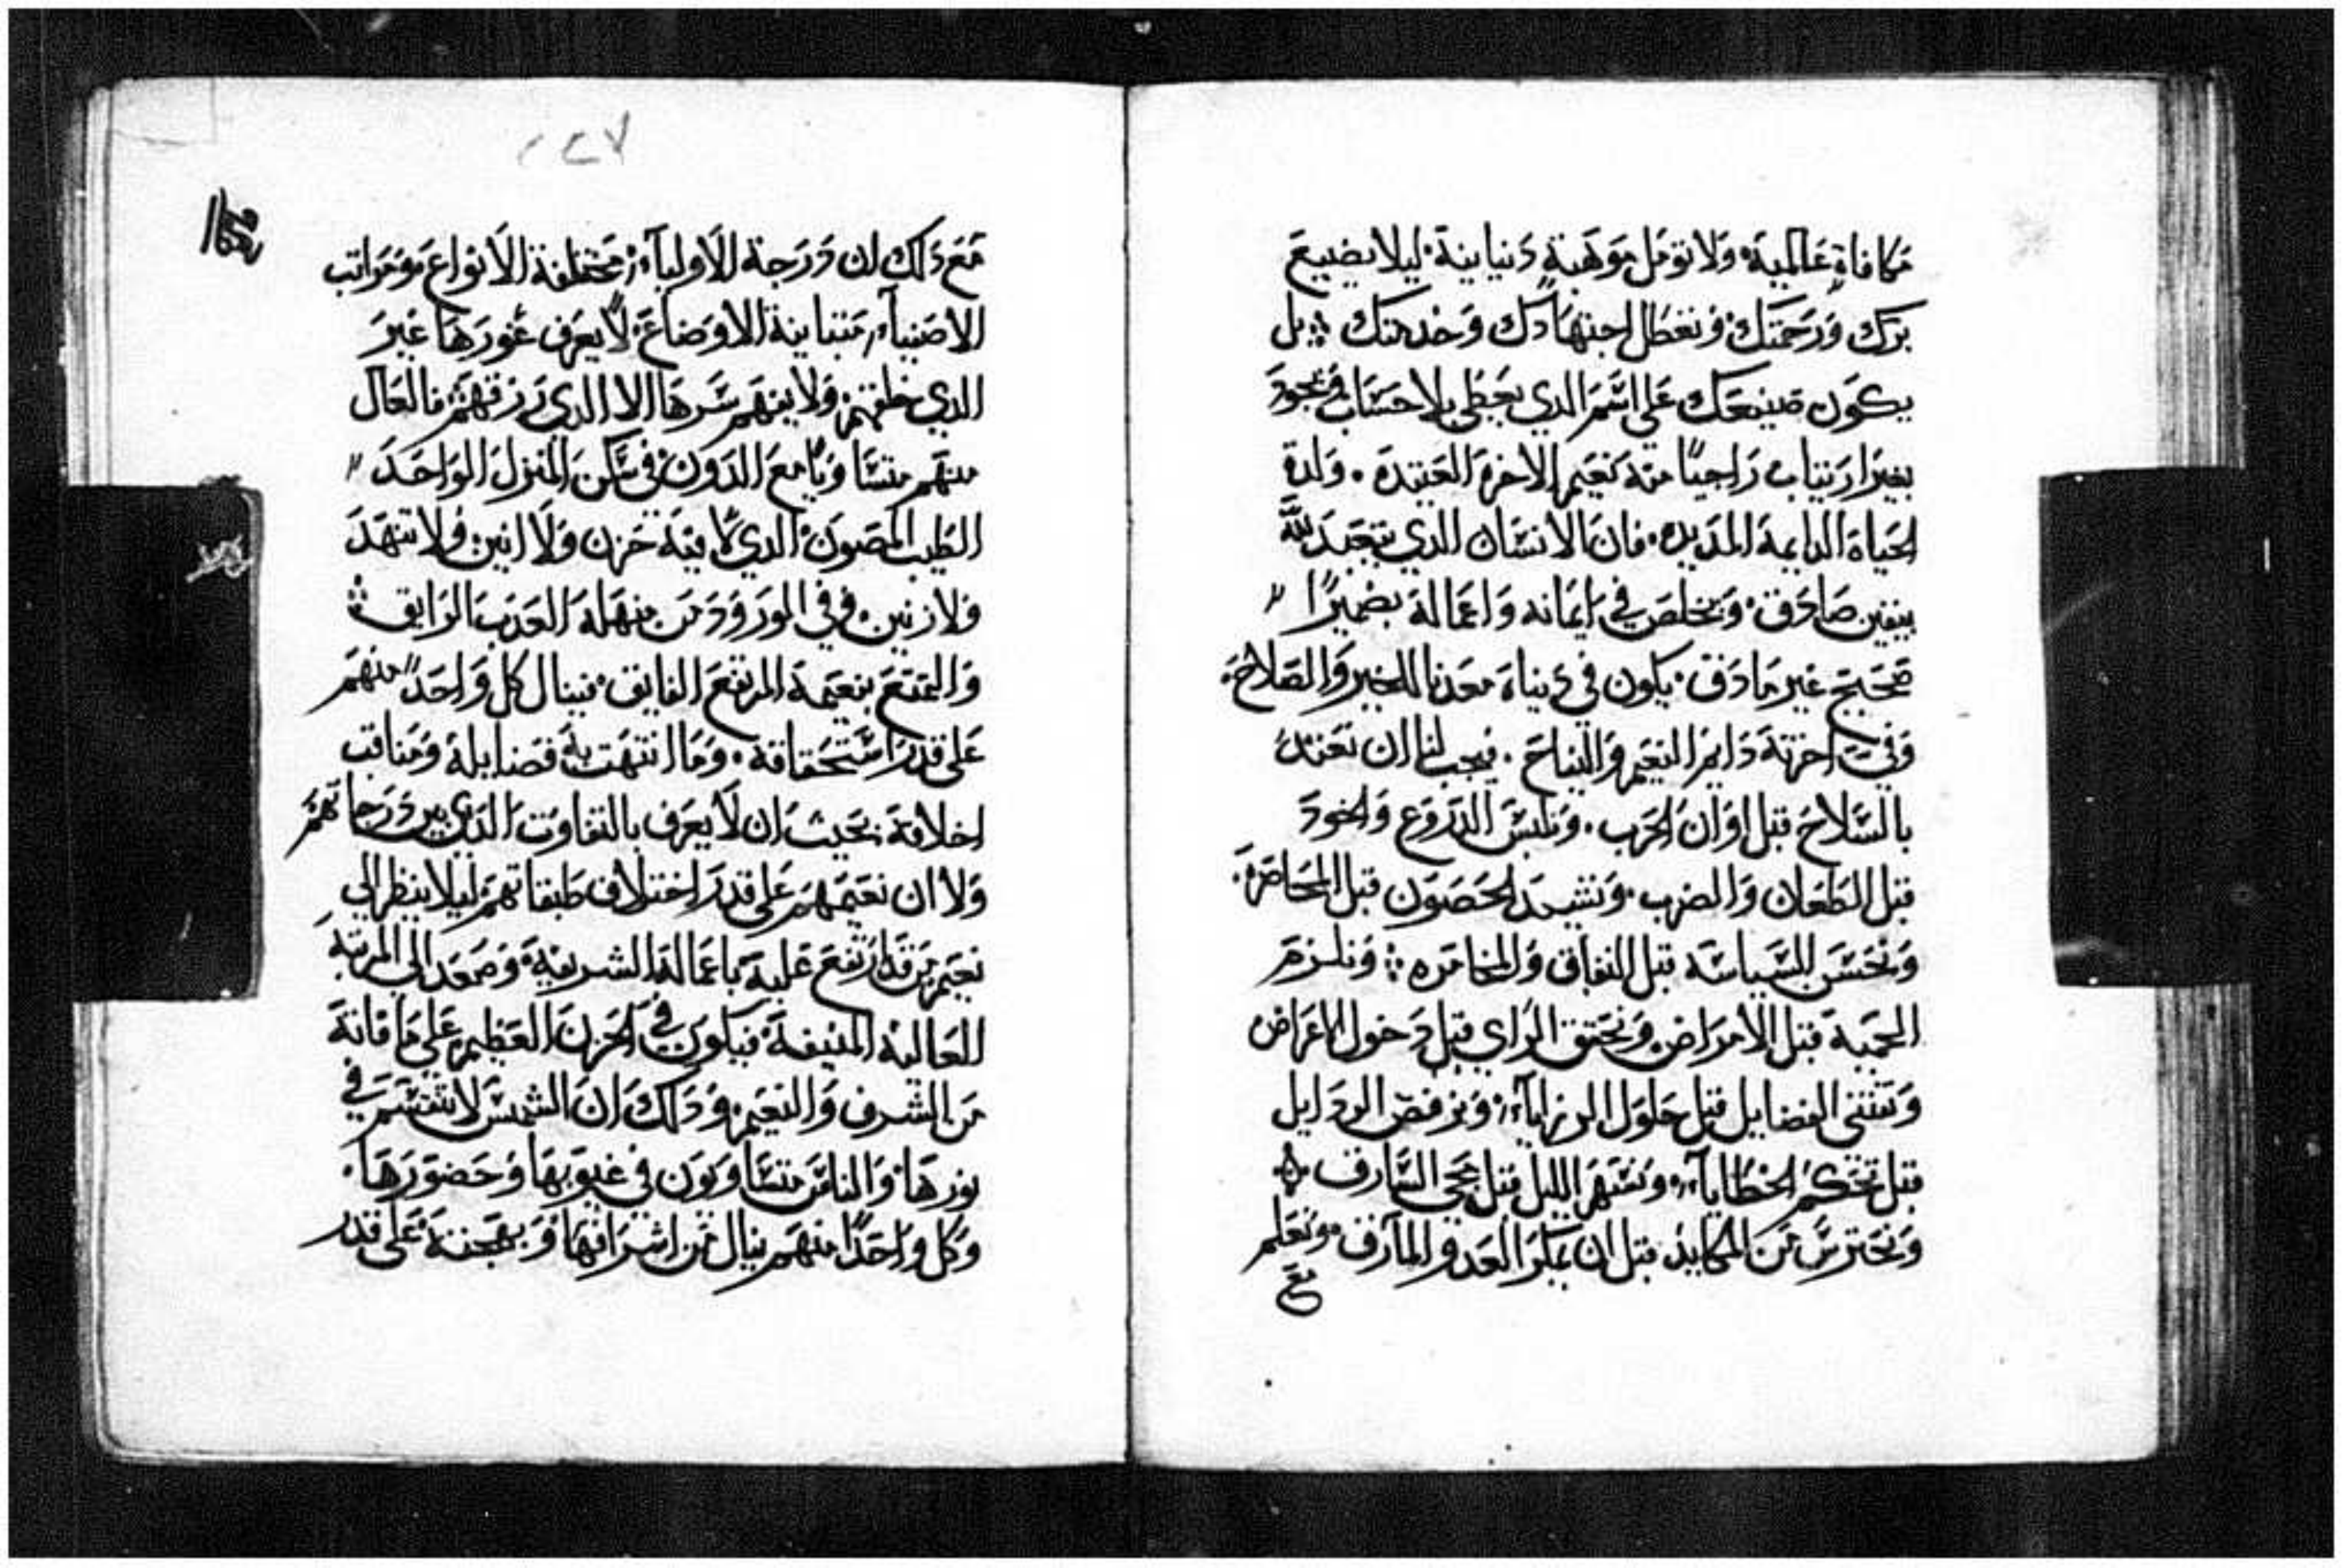 مكافاة عالمية ولا تومل موهبة دنيايية ليلا يضيع
برك ورحمتك وتعطل اجتهادك وخدمتك بل
يكون صنيعك على اسم الذي يعطي بلا حساب ويجود
بغير ارتياب راجيًا منه نعيم الاخرة العتيدة. ولذة
الحياة الدايمة المديدة. فان الانسان الذي يتعبد لله
بيقين صادق ويخلص في ايمانه واعماله بضميرًا
صحيح غير مادق يكون في دنياه معدنا للخير والصلاح
وفي اخرته دايم النعيم والنياح. فيجب لنا ان نعتد
بالسلاح قبل اوان الحرب. ونلبس الدروع والخود
قبل الطعان والضرب. ونشيد الحصون قبل المحاصرة.
ونحسن السياسة قبل النفاق والمخامره ونلزم
الحمية قبل الامراض ونحقق الراي قبل دخول الاعراض
ونقتني الفضايل قبل حلول الرزاياء ونرفض الردايل
قبل تحكم الخطاياء ونسهر الليل قبل مجى السارق
ونحترس من المكايد قبل ان يمكر العدو المارق ونعلم
مع
٢٢٧
مع دلك ان درجة الاولياء مختلفة الانواع ومراتب
الاصفياء متباينة الاوضاع لا يعرف غورها غير
الدي خلقهم ولا يفهم سرها الا الدي رزقهم فالعال
منهم متساويًا مع الدون في سكن المنزل الواحد
الطيب المصون الدي لا فيه حزن ولا انين ولا تنهد
ولا رنين وفي الورود من منهله العدب الرايق
والتمتع بنعيمه المرتفع الفايق فينال كل واحدً منهم
على قدر استحقاقه. وما انتهت به فضايله ومناقب
اخلاقه بحيث ان لا يعرف بالتفاوت الدي بين درجاتهم
ولا ان نعيمهم على قدر اختلاف طبقاتهم ليلا ينظر الي
نعيم من قد ارتفع عليه باعماله الشريفة وصعد الى المرتبة
العالية المنيفة فيكون في الحزن العظيم على ما فاته
من الشرف والنعيم ودلك ان الشمس لا تنقسم في
نورها والناس متساويون في غيوبها وحضورها.
وكل واحدًا منهم ينال من اشراقها وبهجته على قدر